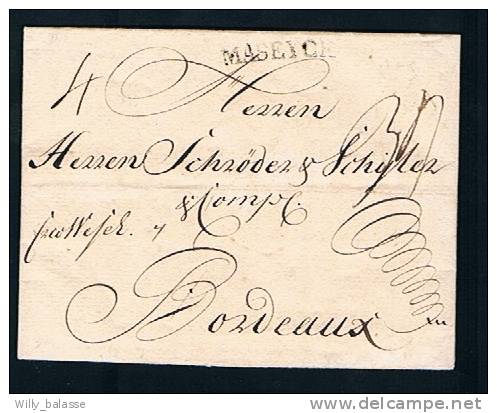 MASEYCK
4 Herren
Herren Schröder & Schÿler
& Comp.
frco Wesel.
Bordeaux
Willy_balasse
delcampe.net